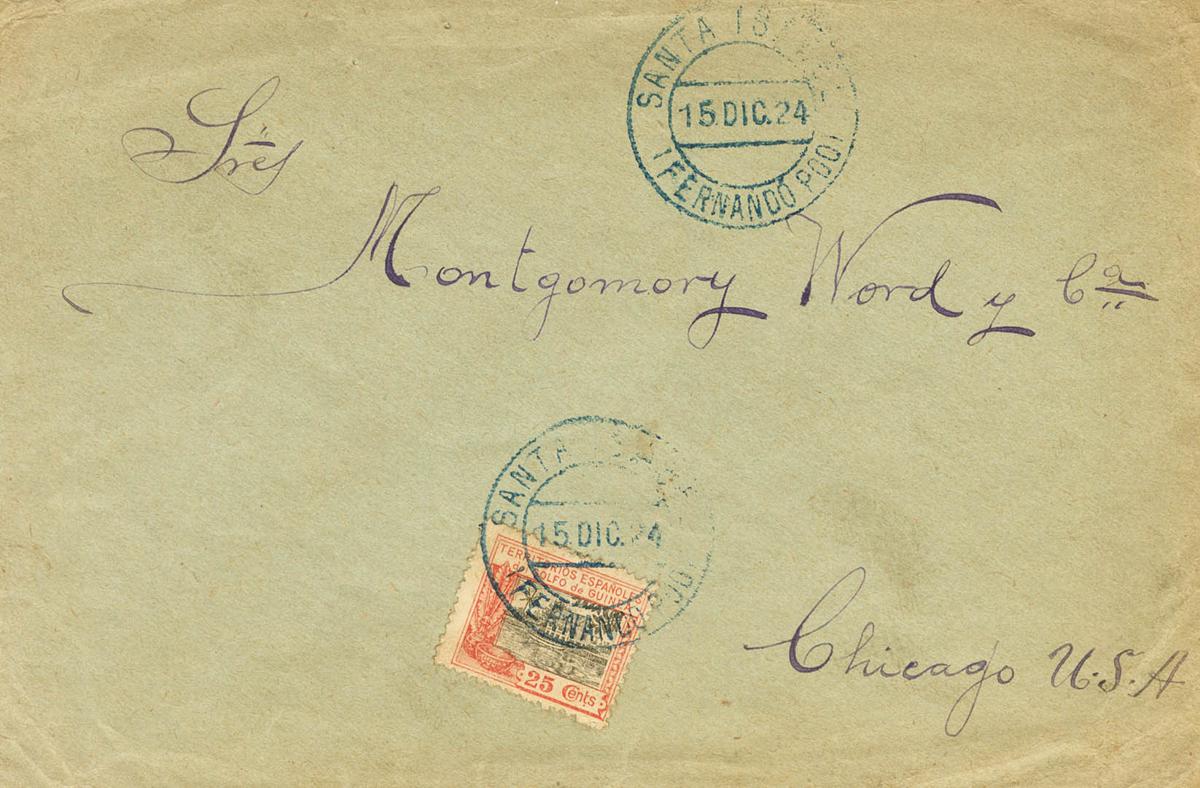 SANTA ISA
15.DIC.24
(FERNANDO POO)
Srés
Montgomory Word y Cª
SANTA
15.DIC.24
(FERNANDO POO)
TERRITORIOS ESPAÑOLES
del GOLFO de GUINEA
25 Cents
Chicago U.S.A